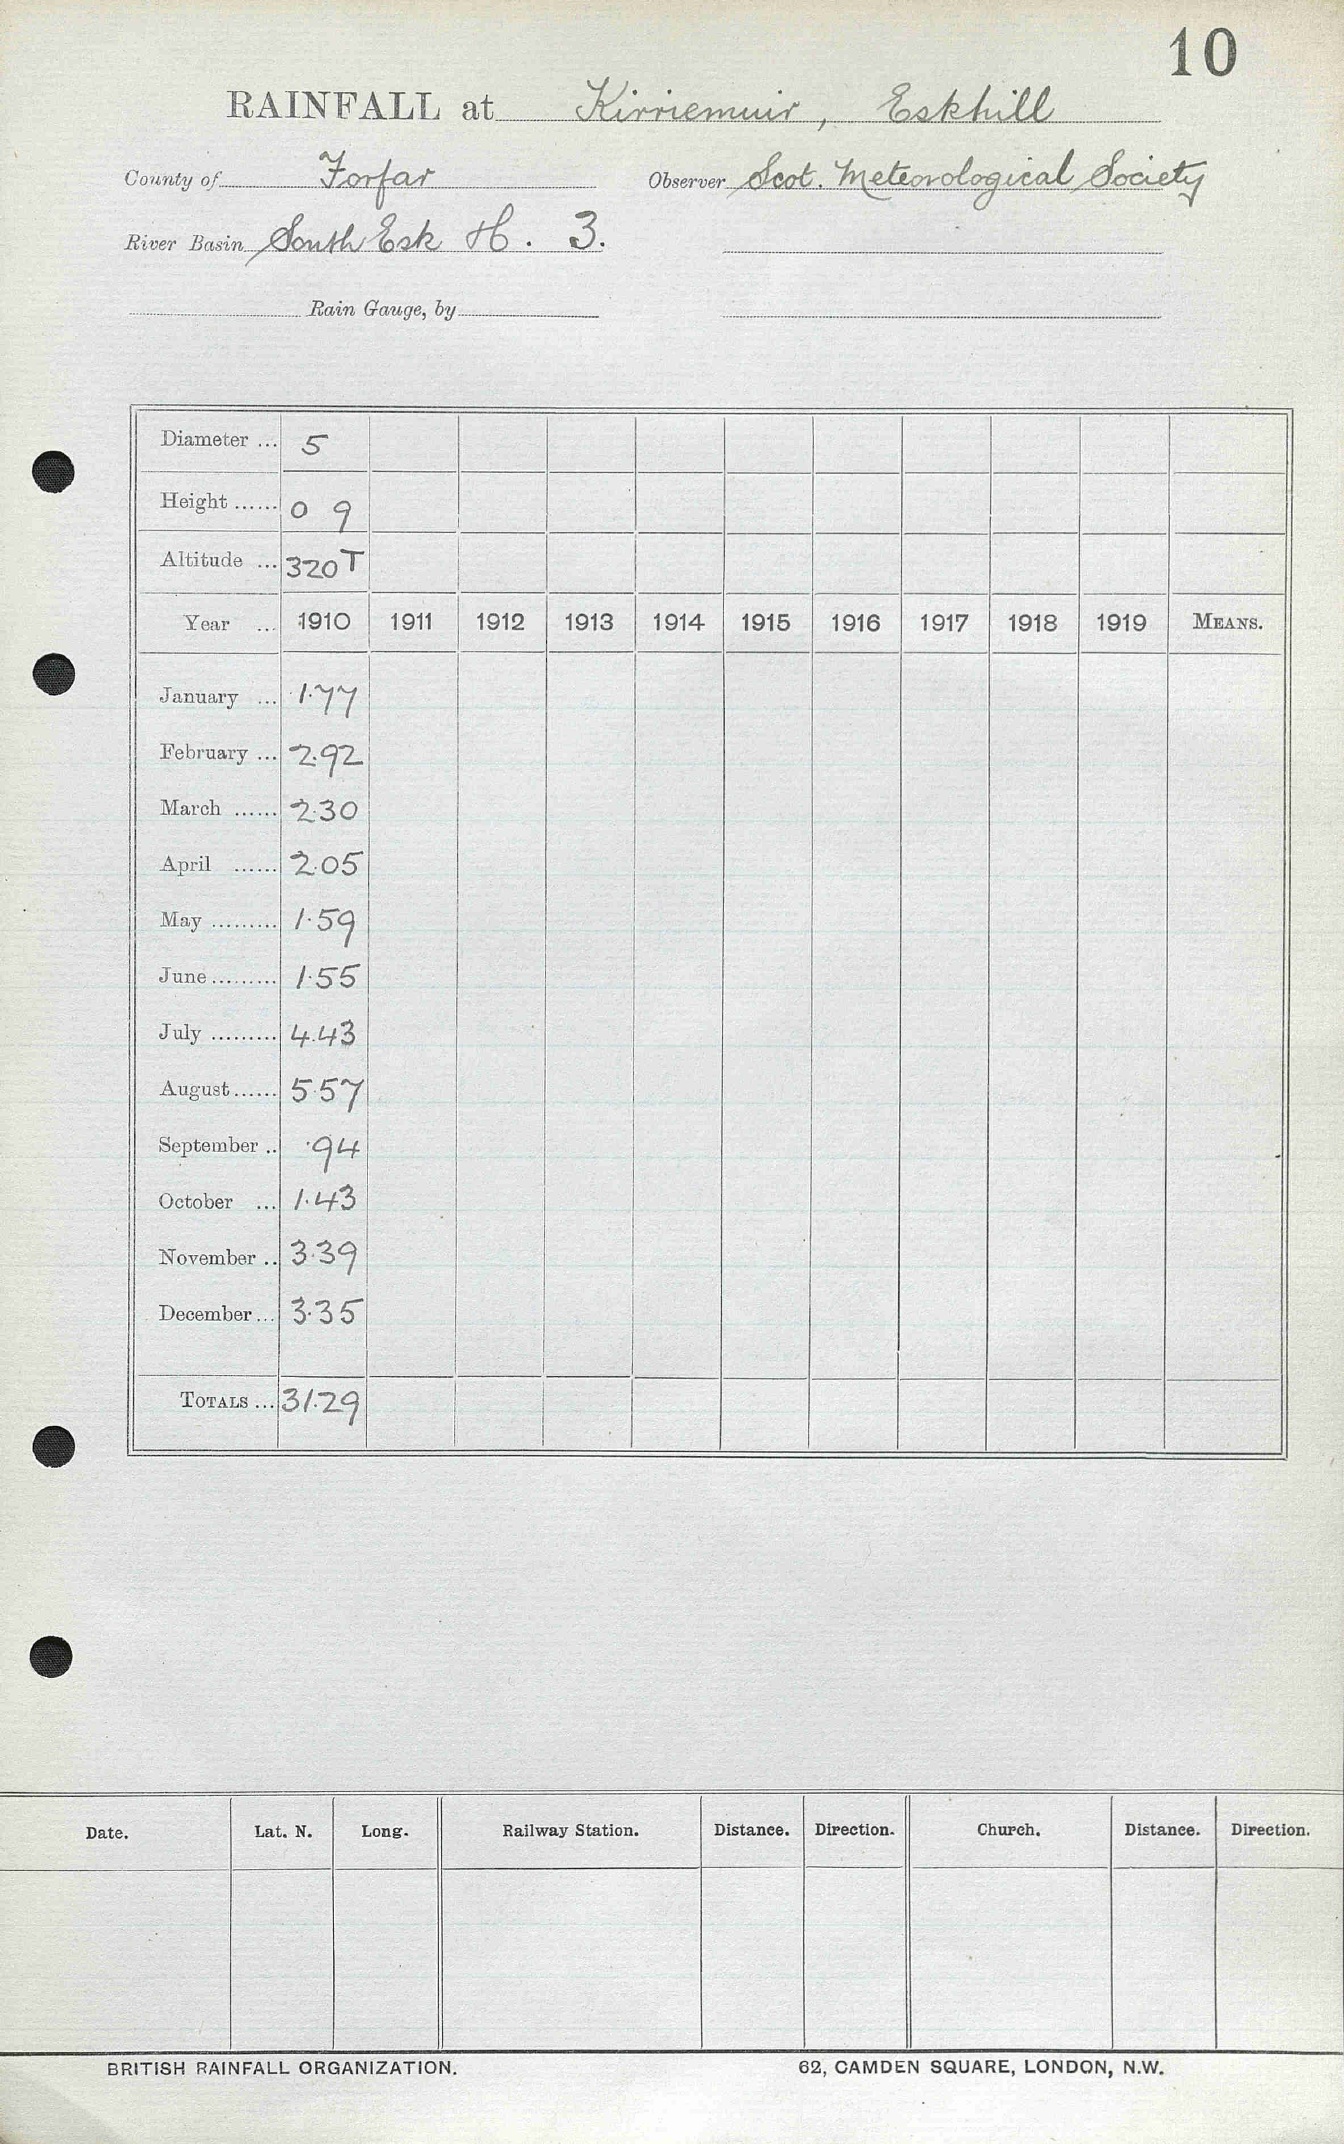 10
RAINFALL at Kirriemuir, Eskhill
County of Forfar Observer Scot. Meteorological Society
River Basin South Esk H. 3.
Rain Gauge, by
Diameter ... 5
Height ...... 0 9
Altitude ... 320T
Year ... 1910 1911 1912 1913 1914 1915 1916 1917 1918 1919 MEANS.
January ... 1.77
February ... 2.92
March ...... 2.30
April ...... 2.05
May ......... 1.59
June ......... 1.55
July ......... 4.43
August ...... 5.57
September .. .94
October ... 1.43
November .. 3.39
December ... 3.35
TOTALS ... 31.29
Date. Lat. N. Long. Railway Station. Distance. Direction. Church. Distance. Direction.
BRITISH RAINFALL ORGANIZATION. 62, CAMDEN SQUARE, LONDON, N.W.